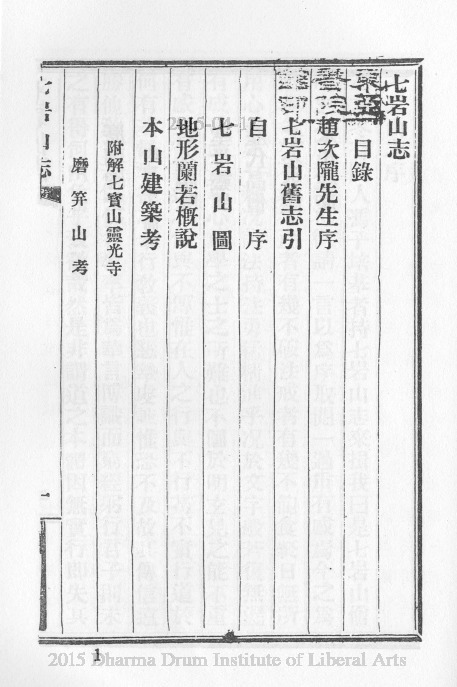 七岩山志
目錄
趙次隴先生序
七岩山舊志引
自序
七岩山圖
地形蘭若概說
本山建築考
附解七寶山靈光寺
磨笄山考
七岩山志
一
1
2015 Dharma Drum Institute of Liberal Arts